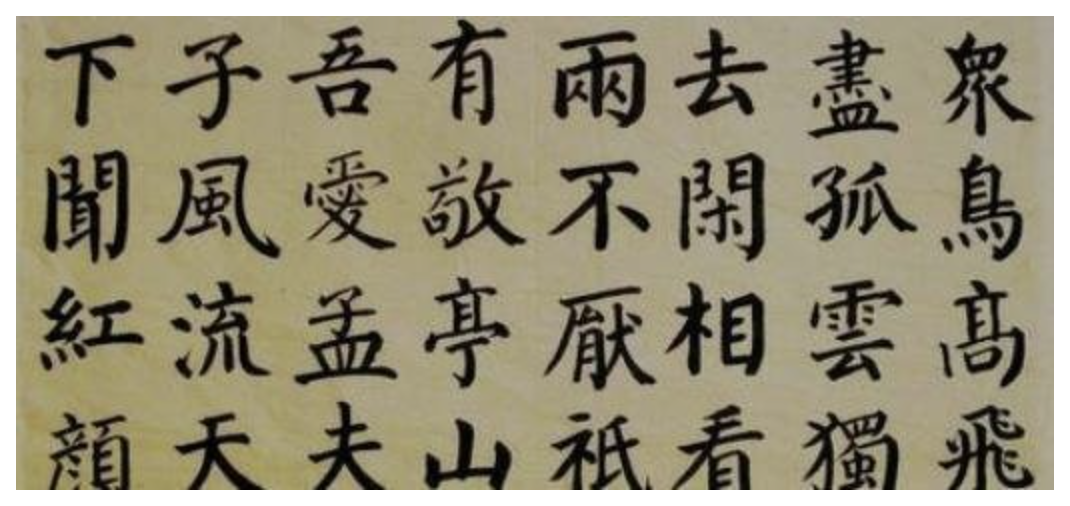 衆鳥高飛
盡孤雲獨
去閑相看
兩不厭祗
有敬亭山
吾愛孟夫
子風流天
下聞紅顔